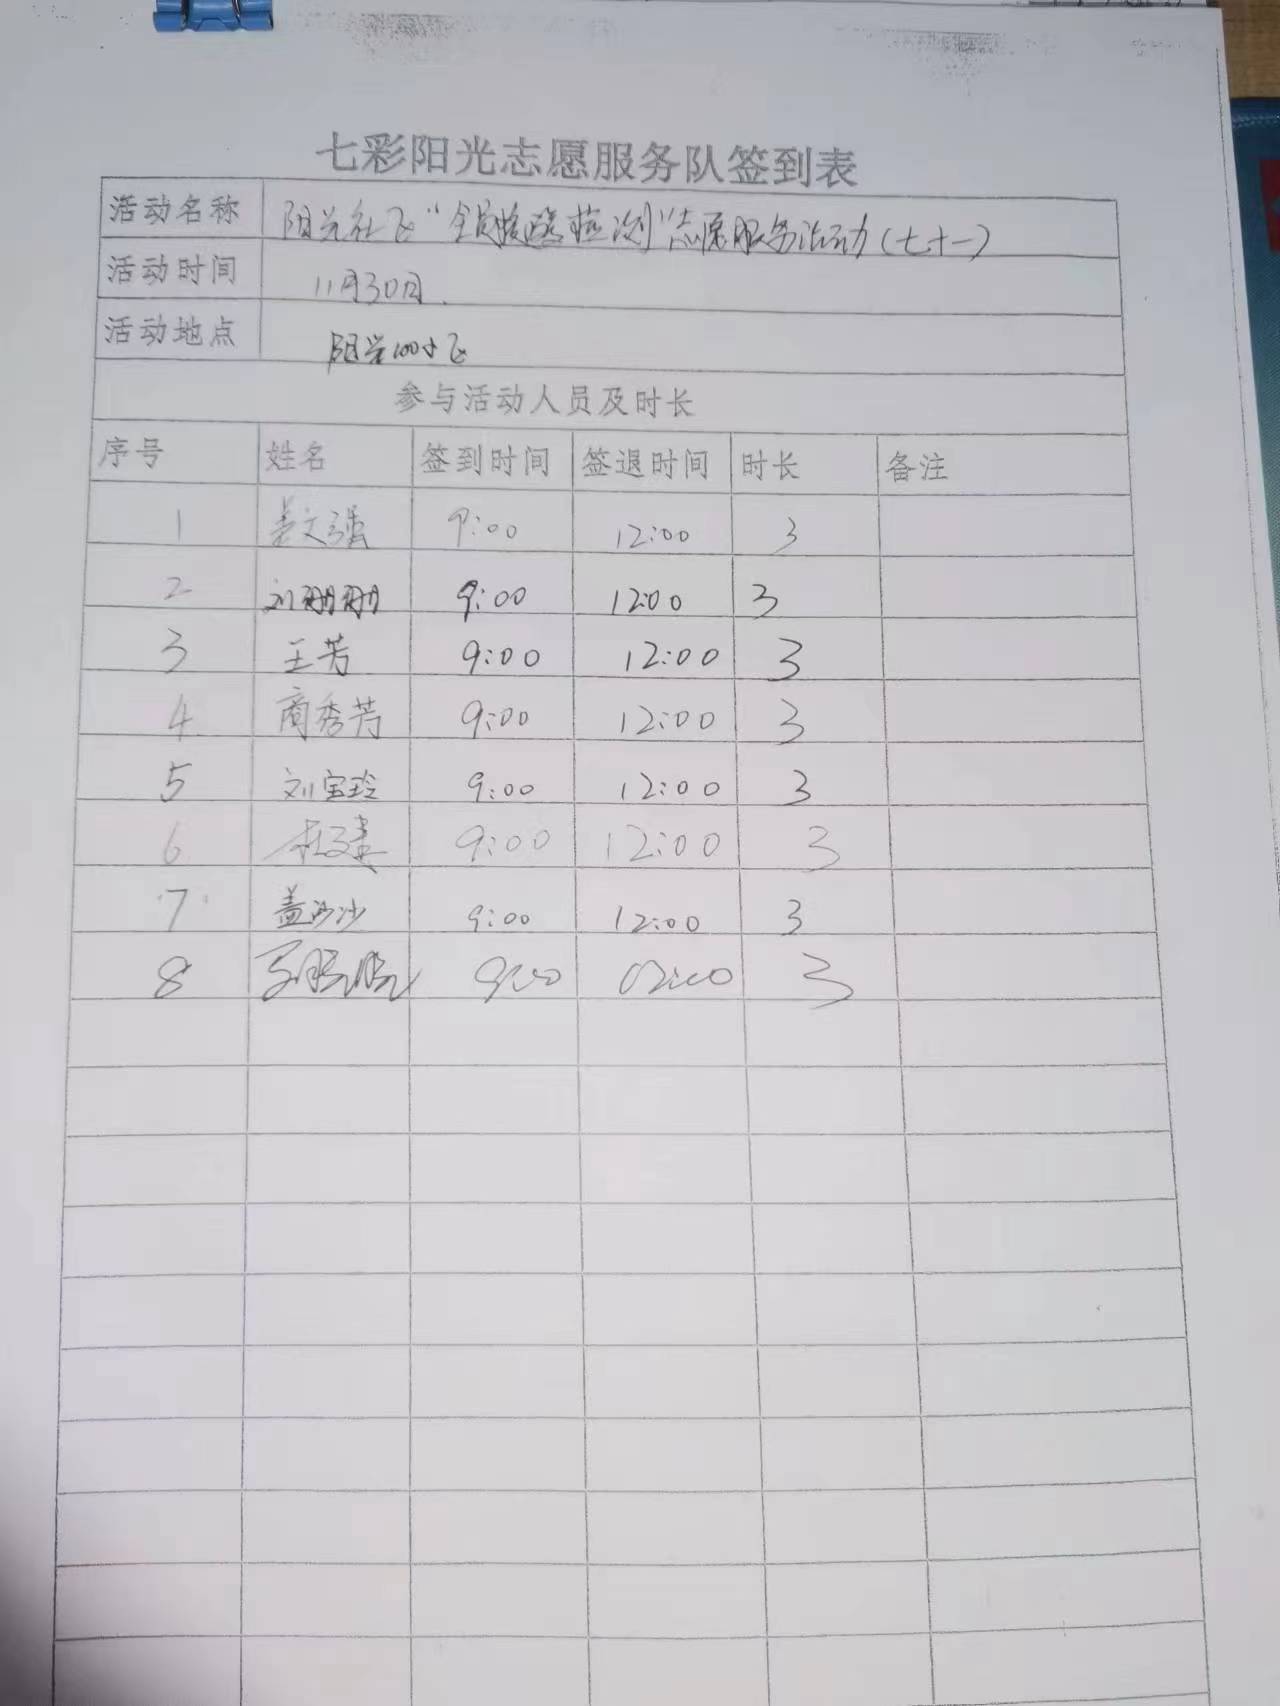 七彩阳光志愿服务队签到表
活动名称 阳光社区“全员核酸检测”志愿服务活动(七十一)
活动时间 11月30日.
活动地点 阳光100小区
参与活动人员及时长
序号 姓名 签到时间 签退时间 时长 备注
1 姜文强 9:00 12:00 3
2 刘珊珊 9:00 12:00 3
3 王芳 9:00 12:00 3
4 商秀芳 9:00 12:00 3
5 刘宝玲 9:00 12:00 3
6 9:00 12:00 3
7 盖沙沙 9:00 12:00 3
8 9:00 12:00 3